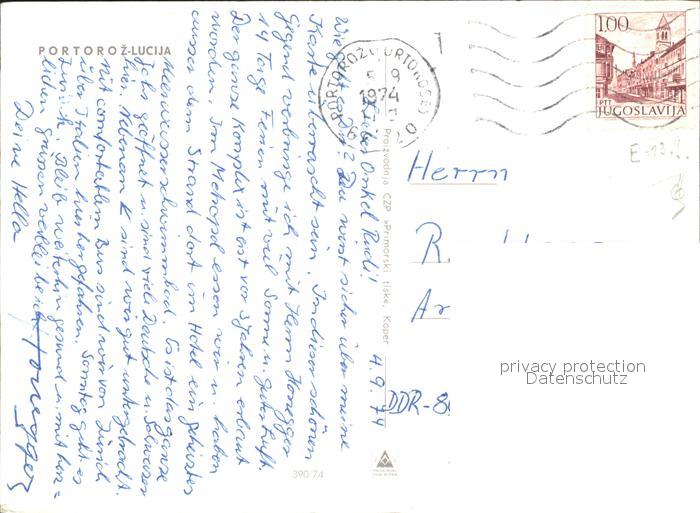 PORTOROŽ-LUCIJA
4.9.74
Lieber Onkel Rudi!
Wie geht es Dir? Du wirst sicher über meine
Karte überrascht sein. In dieser schönen
Gegend verbringe ich mit Herrn Honegger
14 Tage Ferien mit viel Sonne u. guter Luft.
Der ganze Komplex ist erst vor 3 Jahren erbaut
worden. Im Metropol essen wir u. haben
ausser dem Strand dort im Hotel ein geheiztes
Meerwasserschwimmbad. Es ist das ganze
Jahr geöffnet u. sind viele Deutsche u. Schweizer
hier. Nebenan sind wir gut untergebracht.
Mit comfortablem Bus sind wir von Zürich
über Italien hierhergefahren. Sonntag geht es
zurück. Bleib weiterhin gesund u. mit herz=
lichen Grüssen verbleibe ich
Deine Hella
Honegger
Proizvodnja CZP »Primorski tisk«, Koper
390 74
PORTOROŽ PORTOROSE
5 9
1974
1.00
PTT
JUGOSLAVIJA
E-13.2
Herrn
R
Ar
DDR-8
privacy protection
Datenschutz